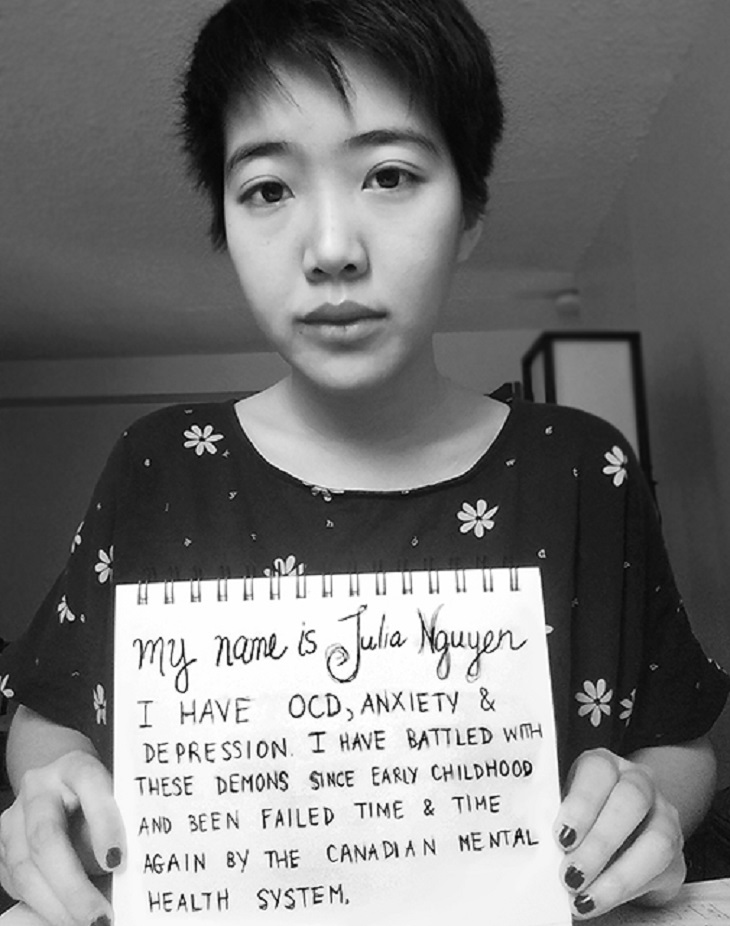 my name is Julia Nguyen
I HAVE OCD, ANXIETY &
DEPRESSION. I HAVE BATTLED WITH
THESE DEMONS SINCE EARLY CHILDHOOD
AND BEEN FAILED TIME & TIME
AGAIN BY THE CANADIAN MENTAL
HEALTH SYSTEM.